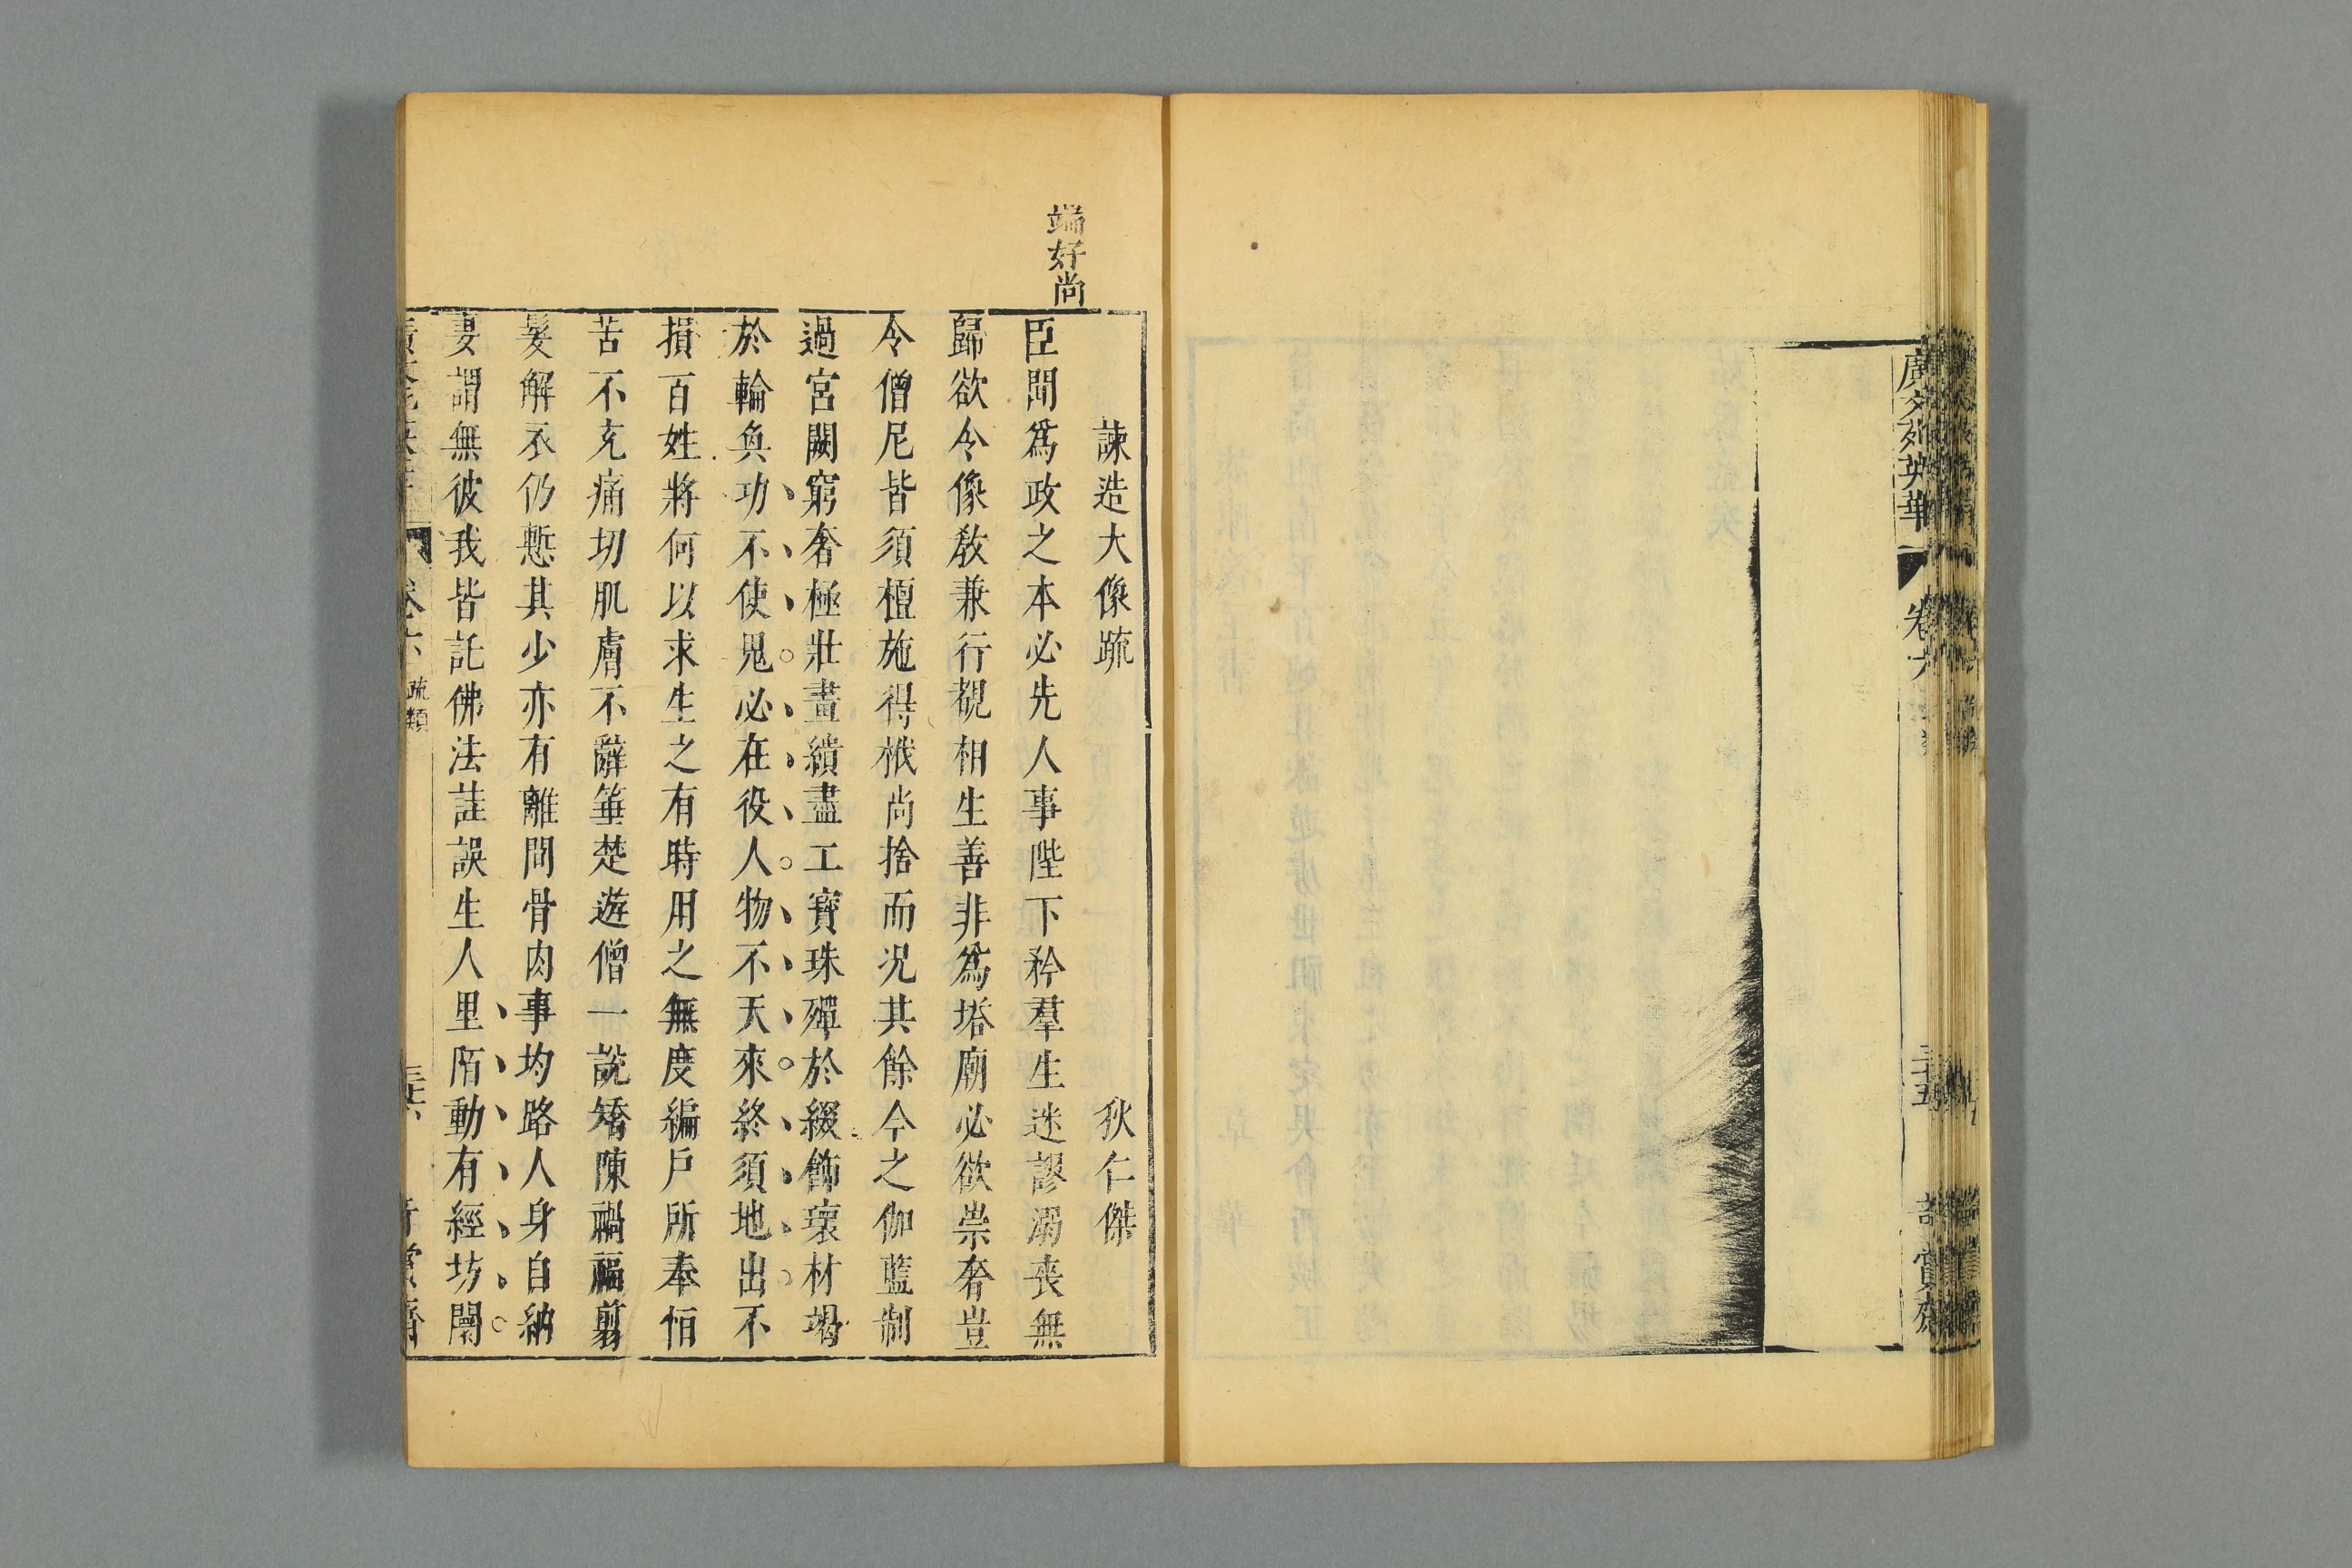 廣文苑英華
卷六
三十五
賞齋
端好尚
諫造大像疏 狄仁傑
臣聞為政之本必先人事陛下矜羣生迷謬溺喪無
歸欲令像教兼行覩相生善非為塔廟必欲崇奢豈
令僧尼皆須檀施得栰尚捨而况其餘今之伽藍制
過宮闕窮奢極壯畫繢盡工寳珠殫於綴飾瓌材竭
於輪奐功不使鬼必在役人物不天來終須地出不
損百姓將何以求生之有時用之無度編戶所奉恒
苦不充痛切肌膚不辭箠楚遊僧一說矯陳禍福剪
髮解衣仍慙其少亦有離間骨肉事均路人身自納
妻謂無彼我皆託佛法詿誤生人里陌動有經坊闤
卷六 疏類
三十六